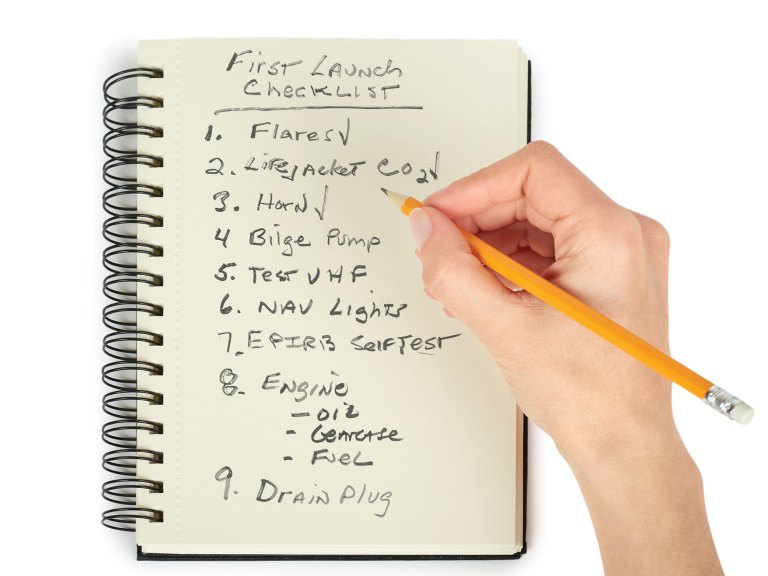 First Launch
Checklist
1. Flares ✓
2. Lifejacket CO2 ✓
3. Horn ✓
4 Bilge Pump
5. Test VHF
6. NAV Lights
7. EPIRB Self Test
8. Engine
- Oil
- Gearcase
- Fuel
9. Drain Plug